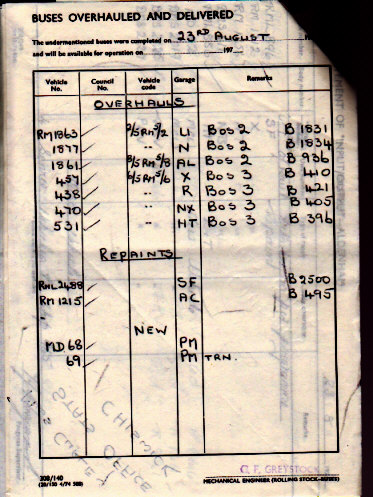 BUSES OVERHAULED AND DELIVERED
The undermentioned buses were completed on 23RD AUGUST
and will be available for operation on 197
Vehicle No. Council No. Vehicle code Garage Remarks
OVERHAULS
RM1863 2/5RM5/2 LI BOS 2 B 1831
1877 " N BOS 2 B 1834
1861 8/5RM5/8 AL BOS 2 B 936
457 6/5RM5/6 X BOS 3 B 410
438 " R BOS 3 B 421
470 " NX BOS 3 B 405
531 " HT BOS 3 B 396
REPAINTS
RML2488 SF B2500
RM1215 AC B 495
NEW
MD68 PM
69 PM TRN.
CHISWICK
STATS OFFICE
G. F. GREYSTOCK
208/140
MECHANICAL ENGINEER (ROLLING STOCK—BUSES)